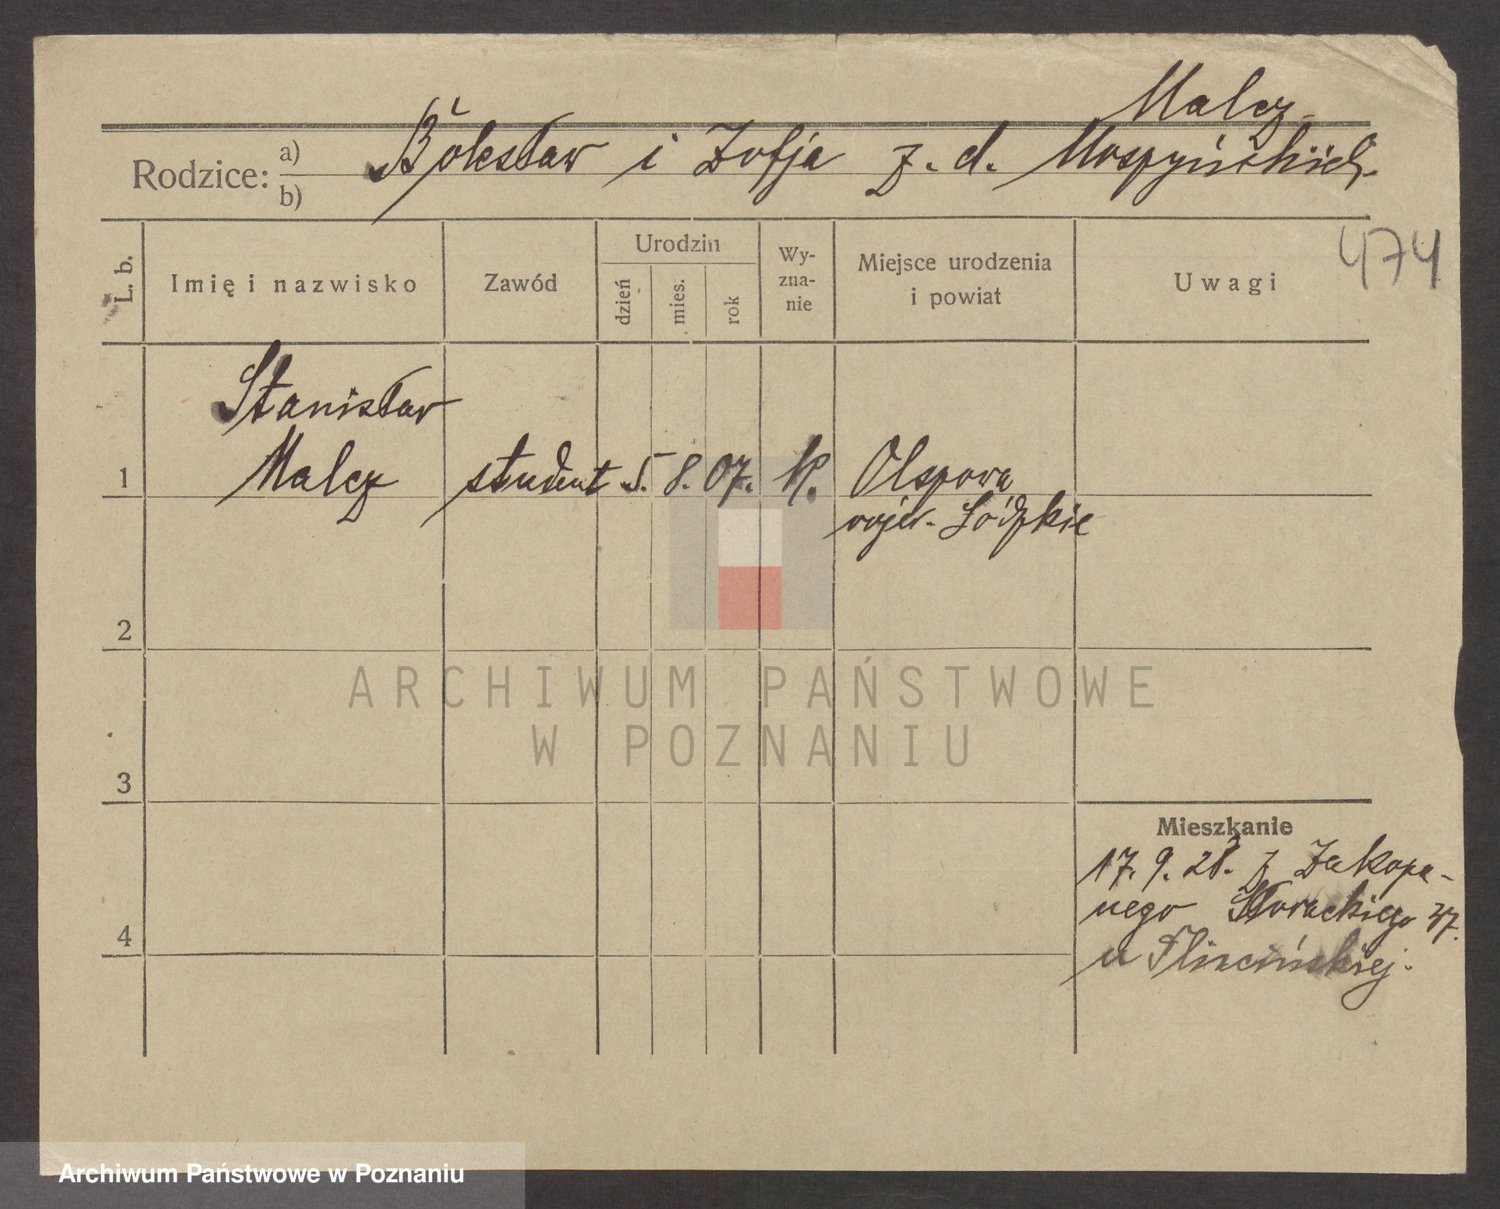 Malcz
Rodzice: a) b) Bolesław i Zofja z. d. Mospyńskich.
474
L. b.
Imię i nazwisko
Zawód
Urodzin
dzień
mies.
rok
Wy-
zna-
nie
Miejsce urodzenia
i powiat
Uwagi
Stanisław
1 Malcz student 5. 8. 07. k. Olszowa
wojew. Łódzkie
2
3
4
ARCHIWUM PAŃSTWOWE
W POZNANIU
Mieszkanie
17. 9. 28. z Zakopa-
nego Słowackiego 37.
u
Archiwum Państwowe w Poznaniu